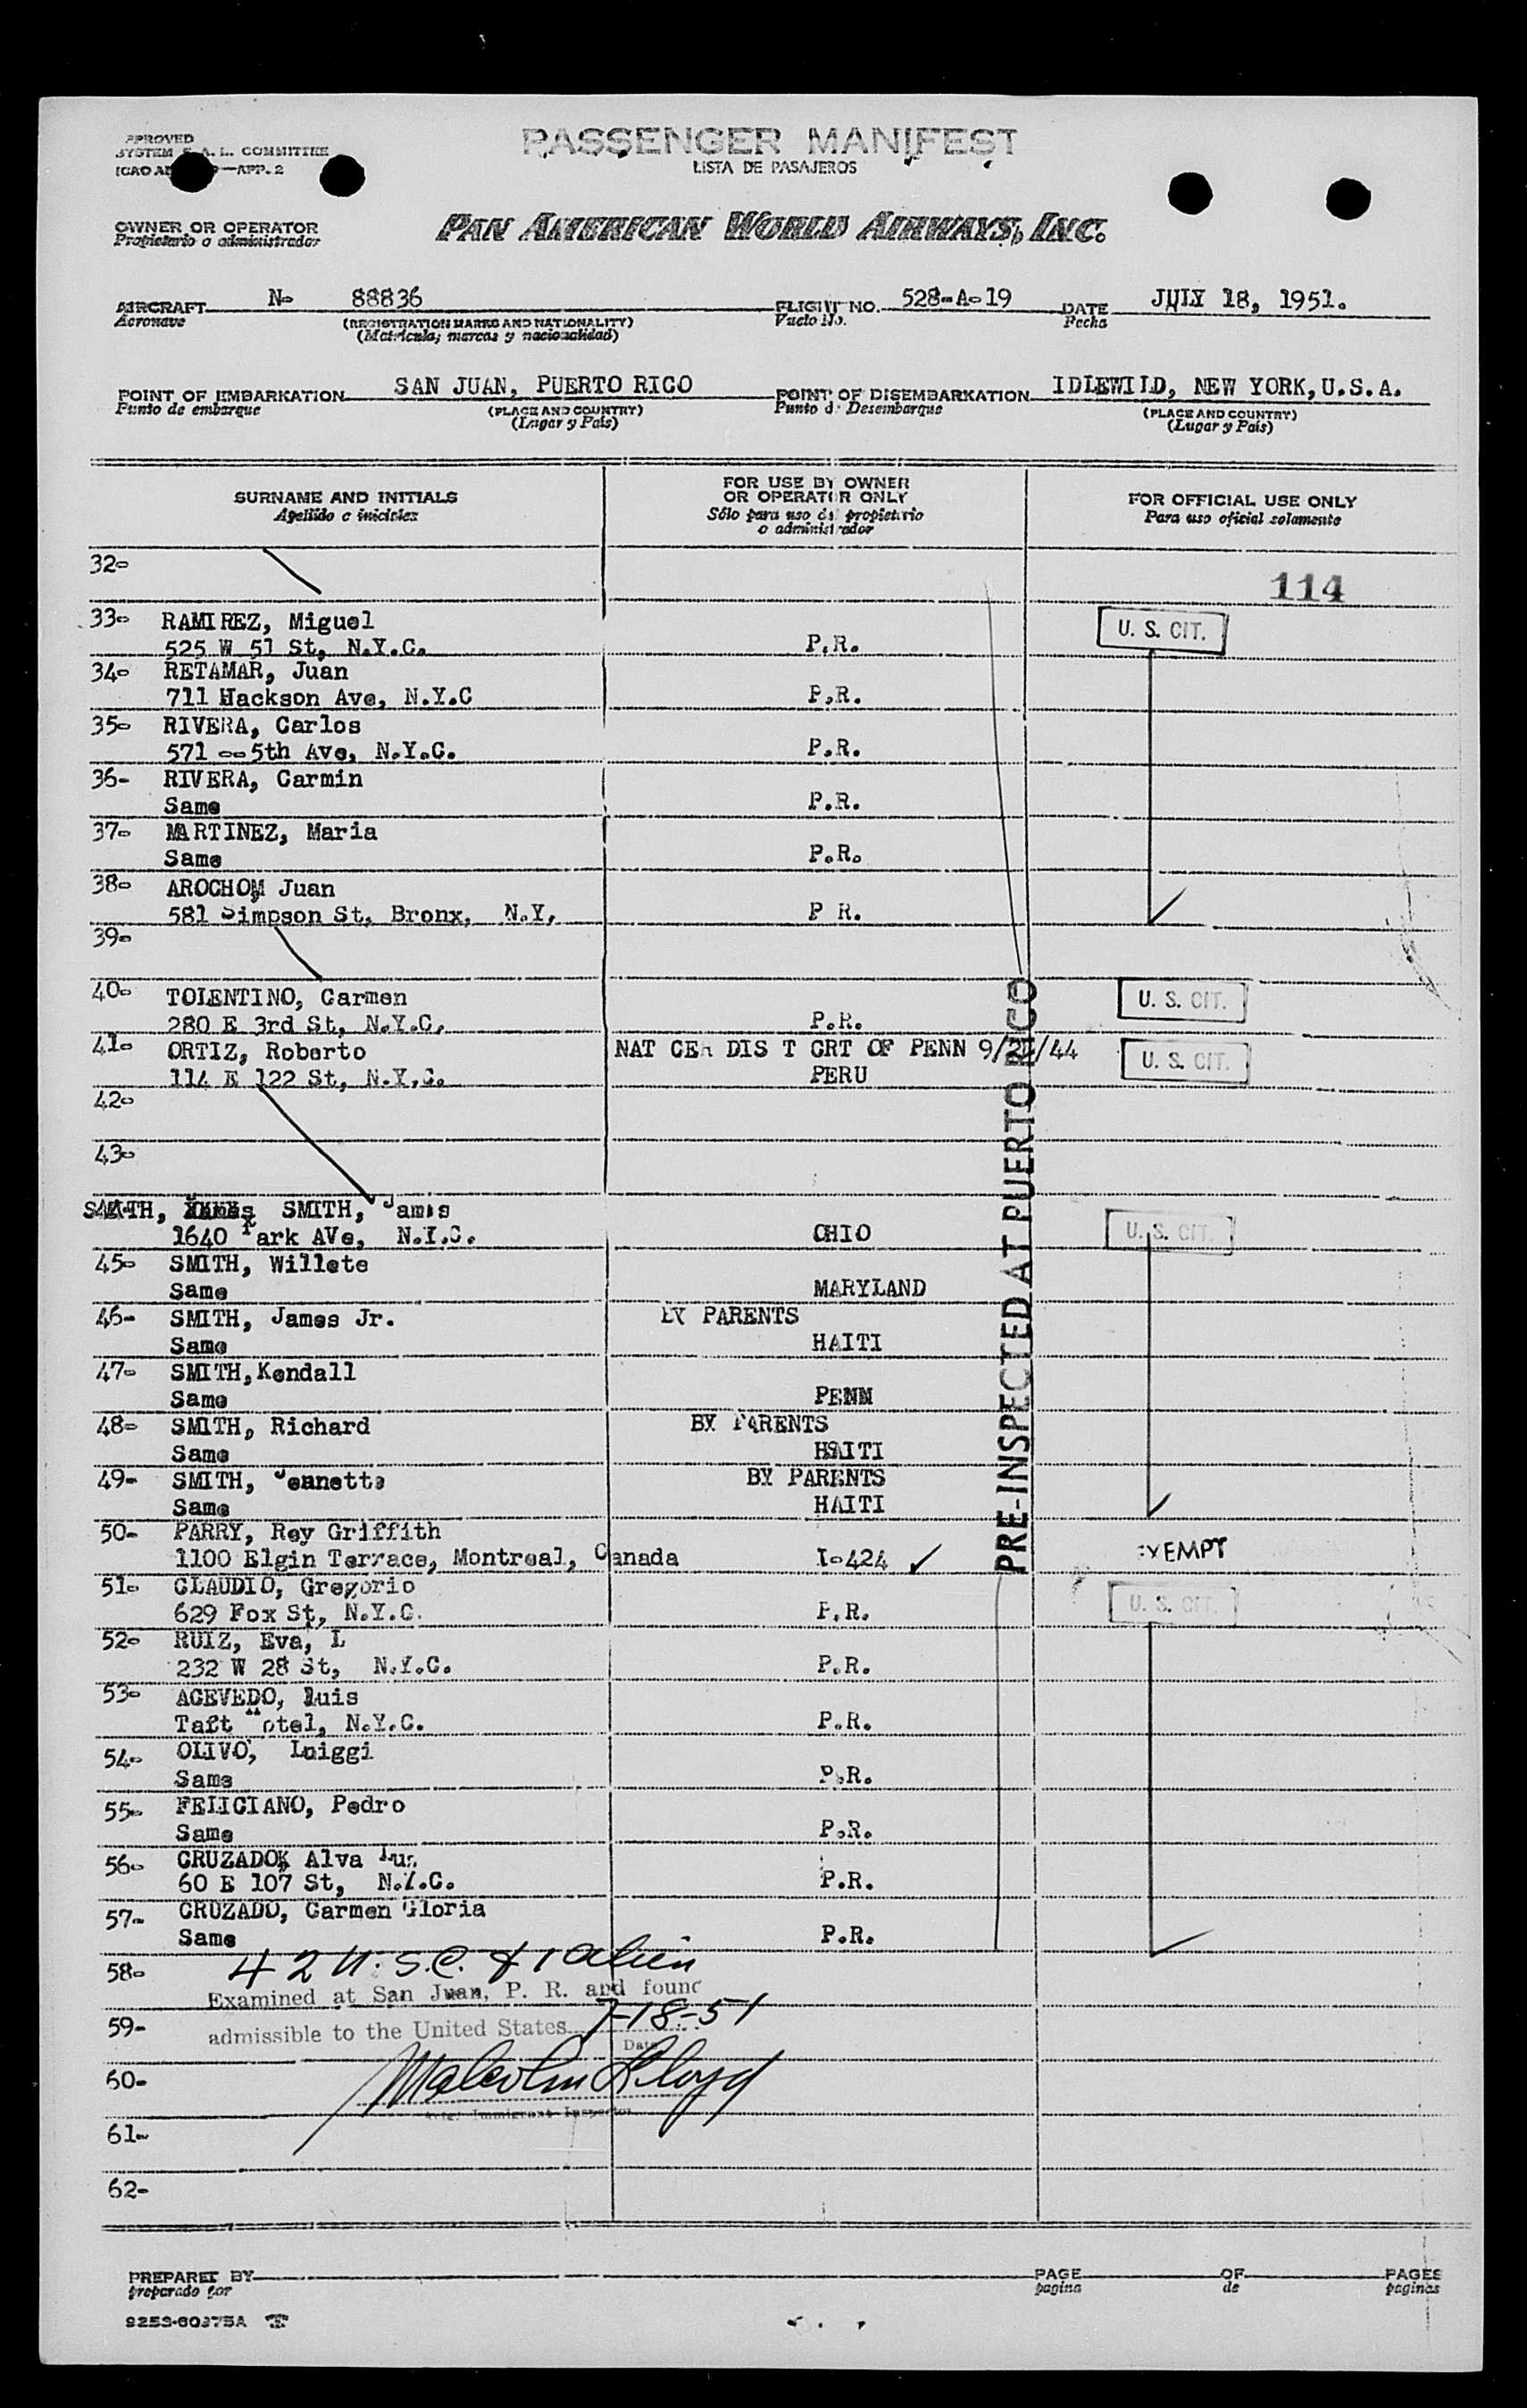 APPROVED
SYSTEM A. L. COMMITTEE
ICAO —APP. 2
PASSENGER MANIFEST
LISTA DE PASAJEROS
OWNER OR OPERATOR
Propietario o administrador
PAN AMERICAN WORLD AIRWAYS, INC.
AIRCRAFT N- 88836 FLIGHT NO. 528-A-19 DATE JULY 18, 1951.
Aeronave (REGISTRATION MARKS AND NATIONALITY) Vuelo No. Fecha
(Matricula; marcas y nacionalidad)
POINT OF EMBARKATION SAN JUAN, PUERTO RICO POINT OF DISEMBARKATION IDLEWILD, NEW YORK, U.S.A.
Punto de embarque (PLACE AND COUNTRY) Punto de Desembarque (PLACE AND COUNTRY)
(Lugar y País) (Lugar y País)
SURNAME AND INITIALS FOR USE BY OWNER OR OPERATOR ONLY FOR OFFICIAL USE ONLY
Apellido e iniciales Sólo para uso del propietario o administrador Para uso oficial solamente
32-
114
33- RAMIREZ, Miguel U. S. CIT.
525 W 51 St, N.Y.C. P.R.
34- RETAMAR, Juan
711 Hackson Ave, N.Y.C P.R.
35- RIVERA, Carlos
571 --5th Ave, N.Y.C. P.R.
36- RIVERA, Carmin
Same P.R.
37- MARTINEZ, Maria
Same P.R.
38- AROCHOM Juan
581 Simpson St, Bronx, N.Y. P R.
39-
40- TOLENTINO, Carmen U. S. CIT.
280 E 3rd St, N.Y.C. P.R.
41- ORTIZ, Roberto NAT CER DIS T CRT OF PENN 9/ /44 U. S. CIT.
114 E 122 St, N.Y.C. PERU
42-
43-
SMITH, SMITH, James U. S. CIT.
1640 Park AVe, N.Y.C. OHIO
45- SMITH, Willete
Same MARYLAND
46- SMITH, James Jr. BY PARENTS
Same HAITI
47- SMITH,Kendall
Same PENN
48- SMITH, Richard BY PARENTS
Same HAITI
49- SMITH, Jeanette BY PARENTS
Same HAITI
50- PARRY, Rey Griffith
1100 Elgin Terrace, Montreal, Canada I-424 ✓ EXEMPT
51- CLAUDIO, Gregorio U. S. CIT.
629 Fox St, N.Y.C. P.R.
52- RUIZ, Eva, L
232 W 28 St, N.Y.C. P.R.
53- ACEVEDO, Luis
Taft Hotel, N.Y.C. P.R.
54- OLIVO, Luiggi
Same P.R.
55- FELICIANO, Pedro
Same P.R.
56- CRUZADOK Alva Luz
60 E 107 St, N.Y.C. P.R.
57- CRUZADO, Carmen Gloria
Same P.R.
PRE-INSPECTED AT PUERTO RICO
58- 42 U.S.C. & 1 alien
Examined at San Juan, P. R. and found
59- admissible to the United States 7-18-51
Date
60- Malcolm Lloyd
Immigrant Inspector
61-
62-
PREPARED BY PAGE OF PAGES
preparado por pagina de paginas